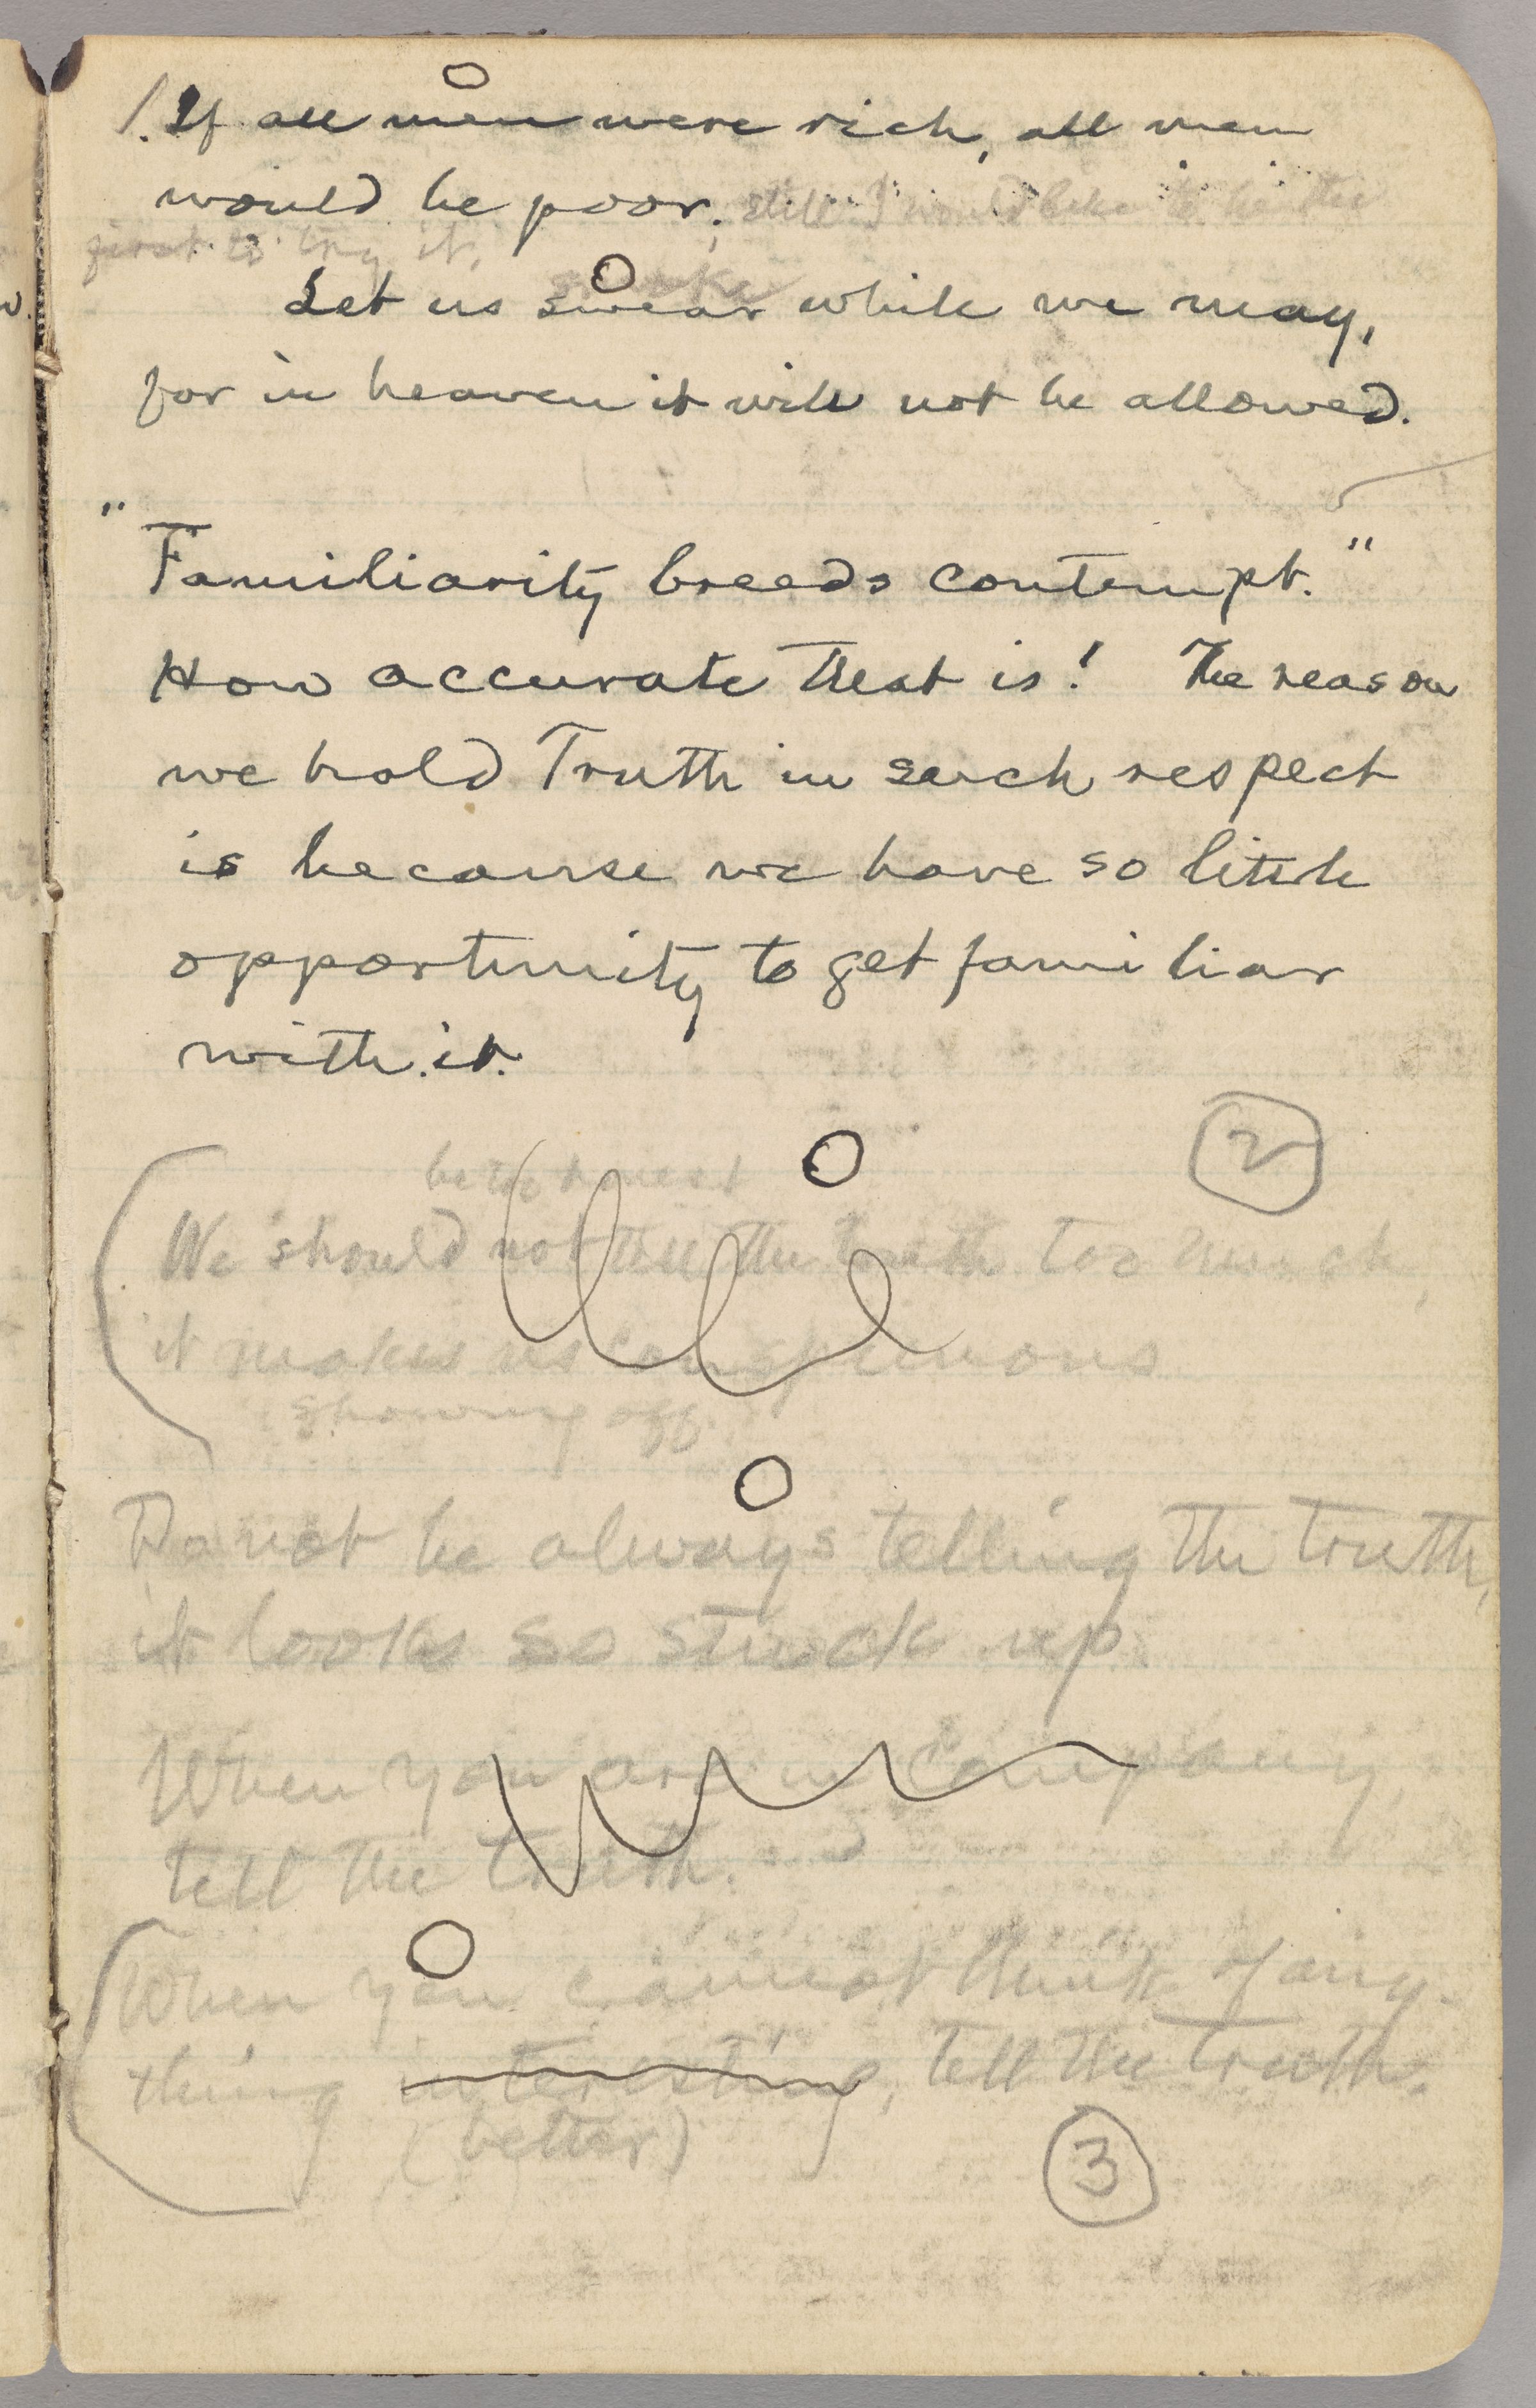 1. If all men were rich, all men
would be poor; still I would like to be the
first to try it.
smoke
Let us swear while we may,
for in heaven it will not be allowed.
"Familiarity breeds contempt."
How accurate that is! The reason
we hold Truth in such respect
is because we have so little
opportunity to get familiar
with it.
2
be honest
We should not tell the truth too much,
it makes us conspicuous
showing off.
Do not be always telling the truth,
it looks so stuck up.
When you are in company,
tell the truth.
When you cannot think of any-
thing interesting, tell the truth.
(better)
3